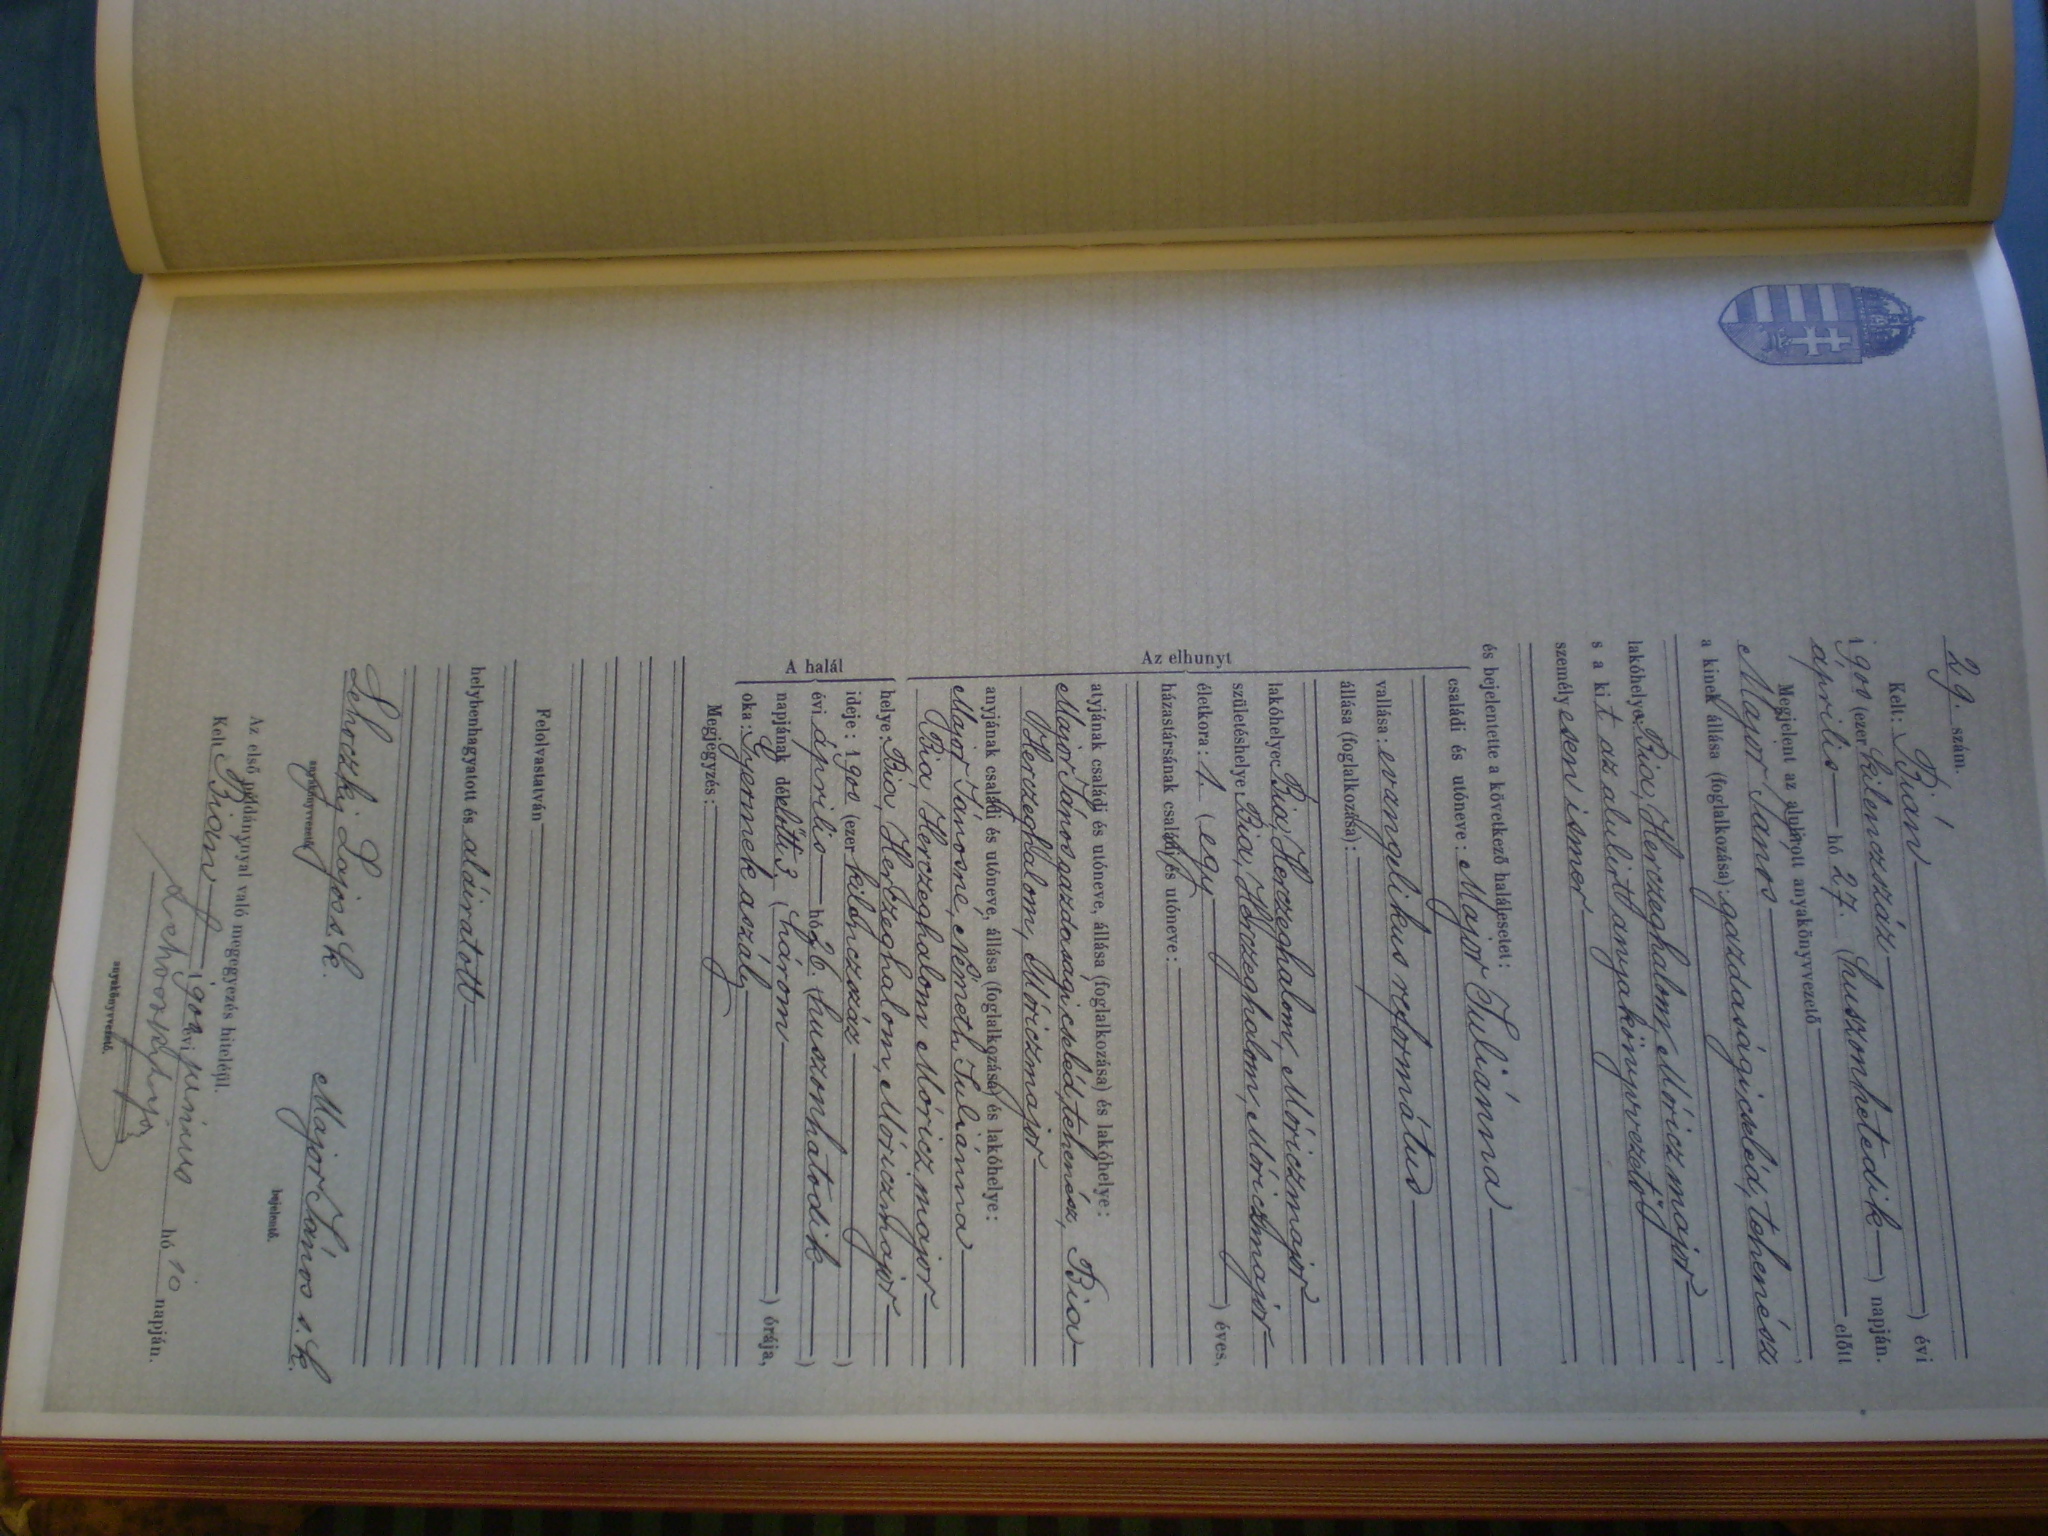 29. szám.
Kelt: Bián ) évi
1900 (ezer kilenczszáz ) napján.
április hó 27. (huszonhetedik ) napján.
Megjelent az alulirott anyakönyvvezető előtt
Major János ,
a kinek állása (foglalkozása): gazdasági cseléd, tehenész ,
lakóhelye: Bia, Herczeghalom Móricz major ,
s a kit az alulirt anyakönyvvezető
személyesen ismer ,
és bejelentette a következő halálesetet:
Az elhunyt
családi és utóneve: Major Juliánna
vallása: evangelikus református
állása (foglalkozása):
lakóhelye: Bia, Herczeghalom, Móriczmajor
születéshelye: Bia, Herczeghalom, Móriczmajor
életkora: 1. (egy ) éves,
házastársának családi és utóneve:
atyjának családi és utóneve, állása (foglalkozása) és lakóhelye:
Major János gazdasági cseléd, tehenész, Bia
Herczeghalom, Móriczmajor
anyjának családi és utóneve, állása (foglalkozása) és lakóhelye:
Major Jánosné, Németh Juliánna
Bia, Herczeghalom Móricz major
A halál
helye: Bia, Herczeghalom, Móriczmajor
ideje: 1900 (ezer kilenczszáz )
évi április hó 26. (huszonhatodik )
napjának délelőtti 3 (három ) órája,
oka: Gyermekaszály
Megjegyzés:
Felolvastatván
helybenhagyatott és aláíratott
Lehoczky Lajos s. k. Major János s. k.
anyakönyvvezető. bejelentő.
Az első példánynyal való megegyezés hiteléül.
Kelt Bián 1900 évi junius hó 10 napján.
anyakönyvvezető.